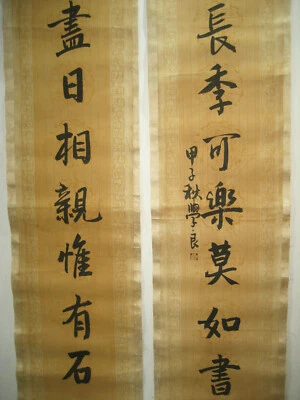 長季可樂莫如書
甲子秋學良
盡日相親惟有石